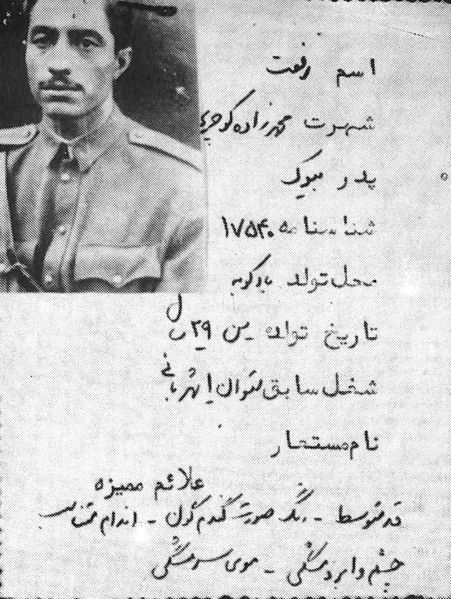 اسم رفعت
شهرت محمدزاده کوجری
پدر بیوک
شناسنامه ۱۷۵۴۰
محل تولد بادکوبه
تاریخ تولد سن ۲۹ سال
شغل سابق ستوان ۱ شهربانی
نام مستعار
علائم ممیزه
قد متوسط - رنگ صورت گندم گون - اندام متناسب
چشم و ابرو مشگی - موی سر مشگی